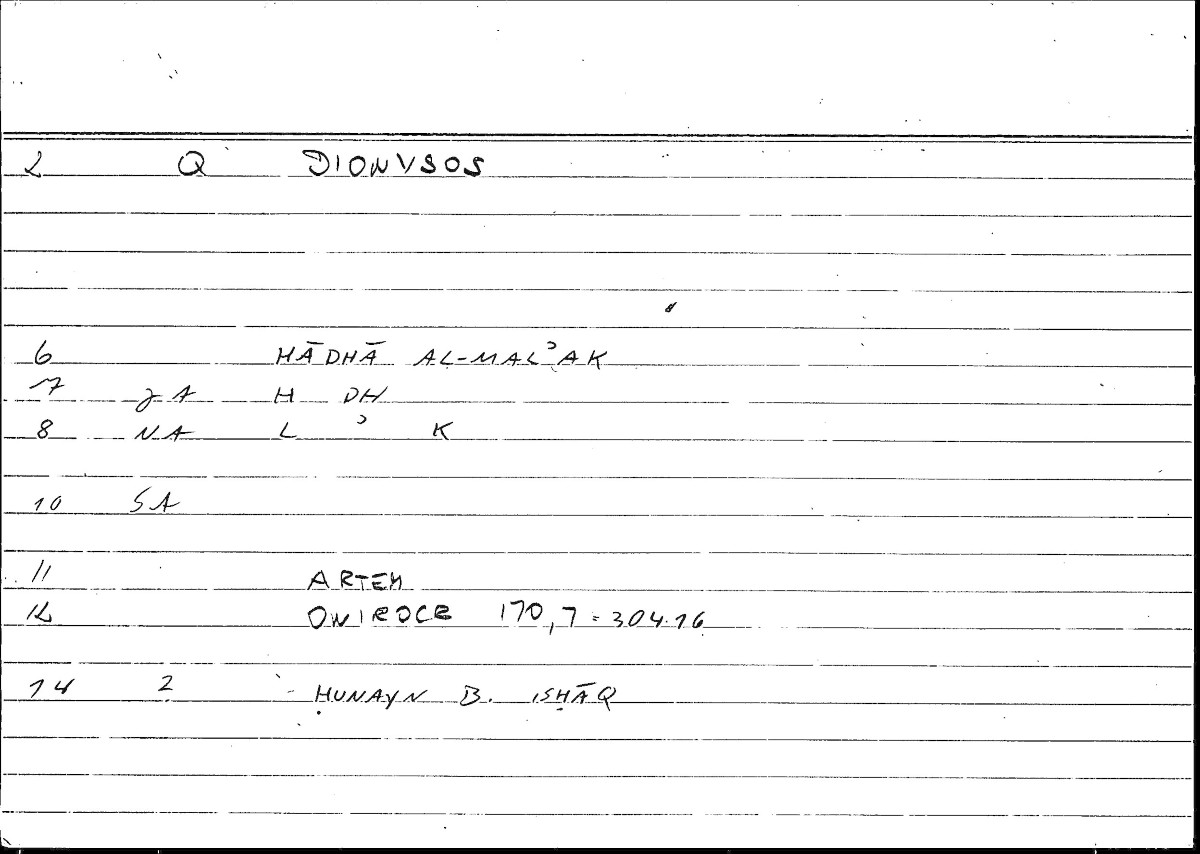 2 Q DIONYSOS
6 HĀDHĀ AL-MALʾAK
7 JA H DH
8 NA L ʾ K
10 SA
11 ARTEM
12 ONIROCR 170,7 = 304.16
14 2 ḤUNAYN B. ISḤĀQ